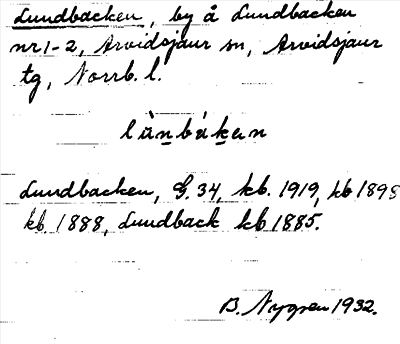 Lundbacken, by å Lundbacken
nr 1-2, Arvidsjaur sn, Arvidsjaur
tg, Norrb. l.
lùnbákan
Lundbacken, G. 34, kb. 1919, kb 1898
kb. 1888, Lundback kb 1885.
B. Nygren 1932.